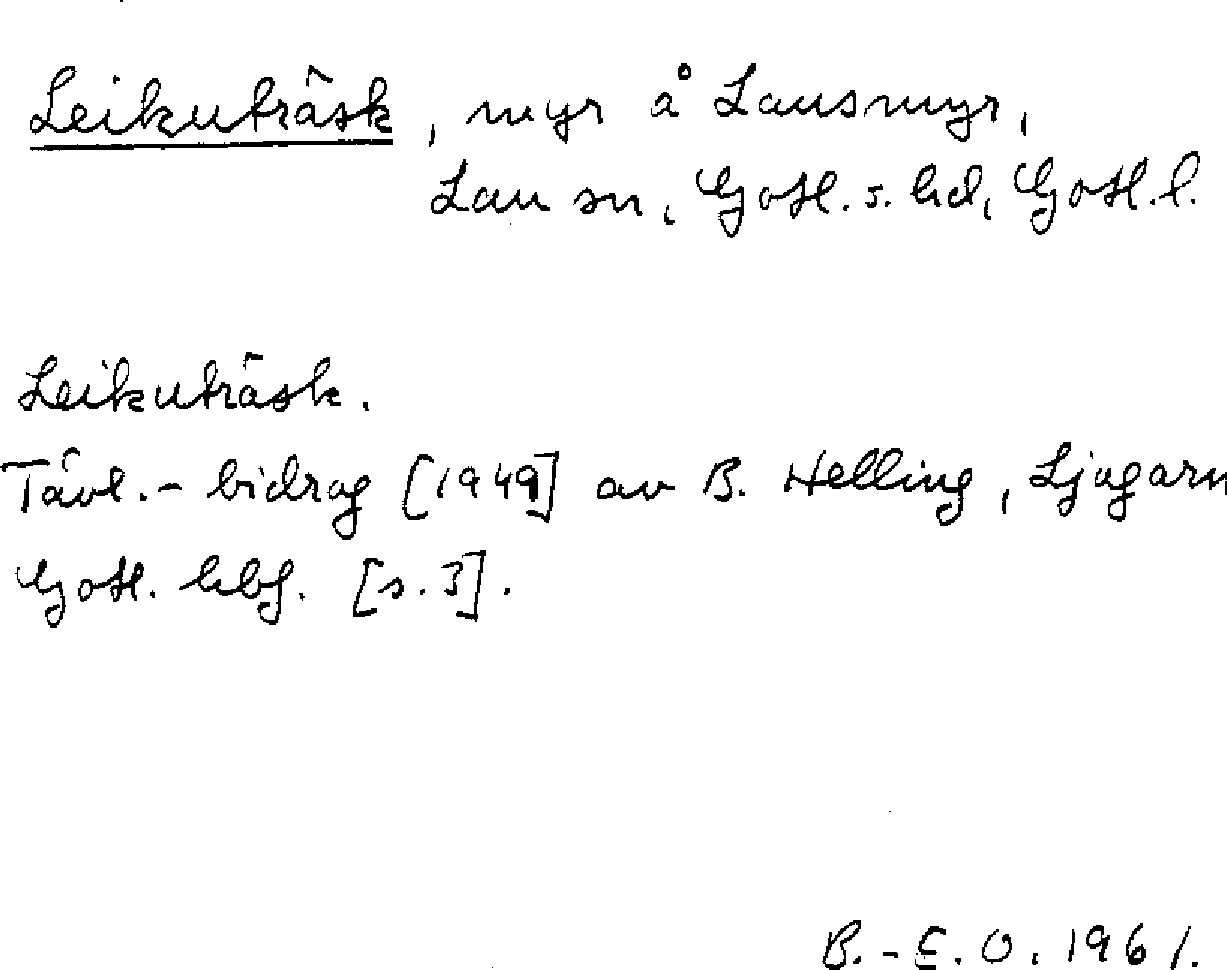 Leikuträsk, myr å Lausmyr,
Lau sn, Gotl. s. hd, Gotl. l.
Leikuträsk.
Tävl.- bidrag [1949] av B. Helling, Ljugarn
Gotl. hbf. [s. 3].
B.-E. O. 1961.